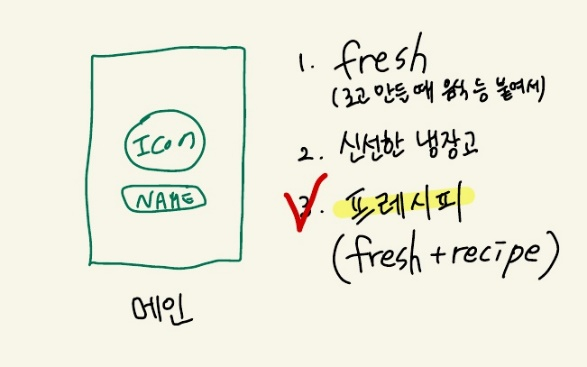 Icon
NAME
메인
1. fresh
(로고 만들 때 음식 등 붙여서)
2. 신선한 냉장고
3. 프레시피
(fresh+recipe)